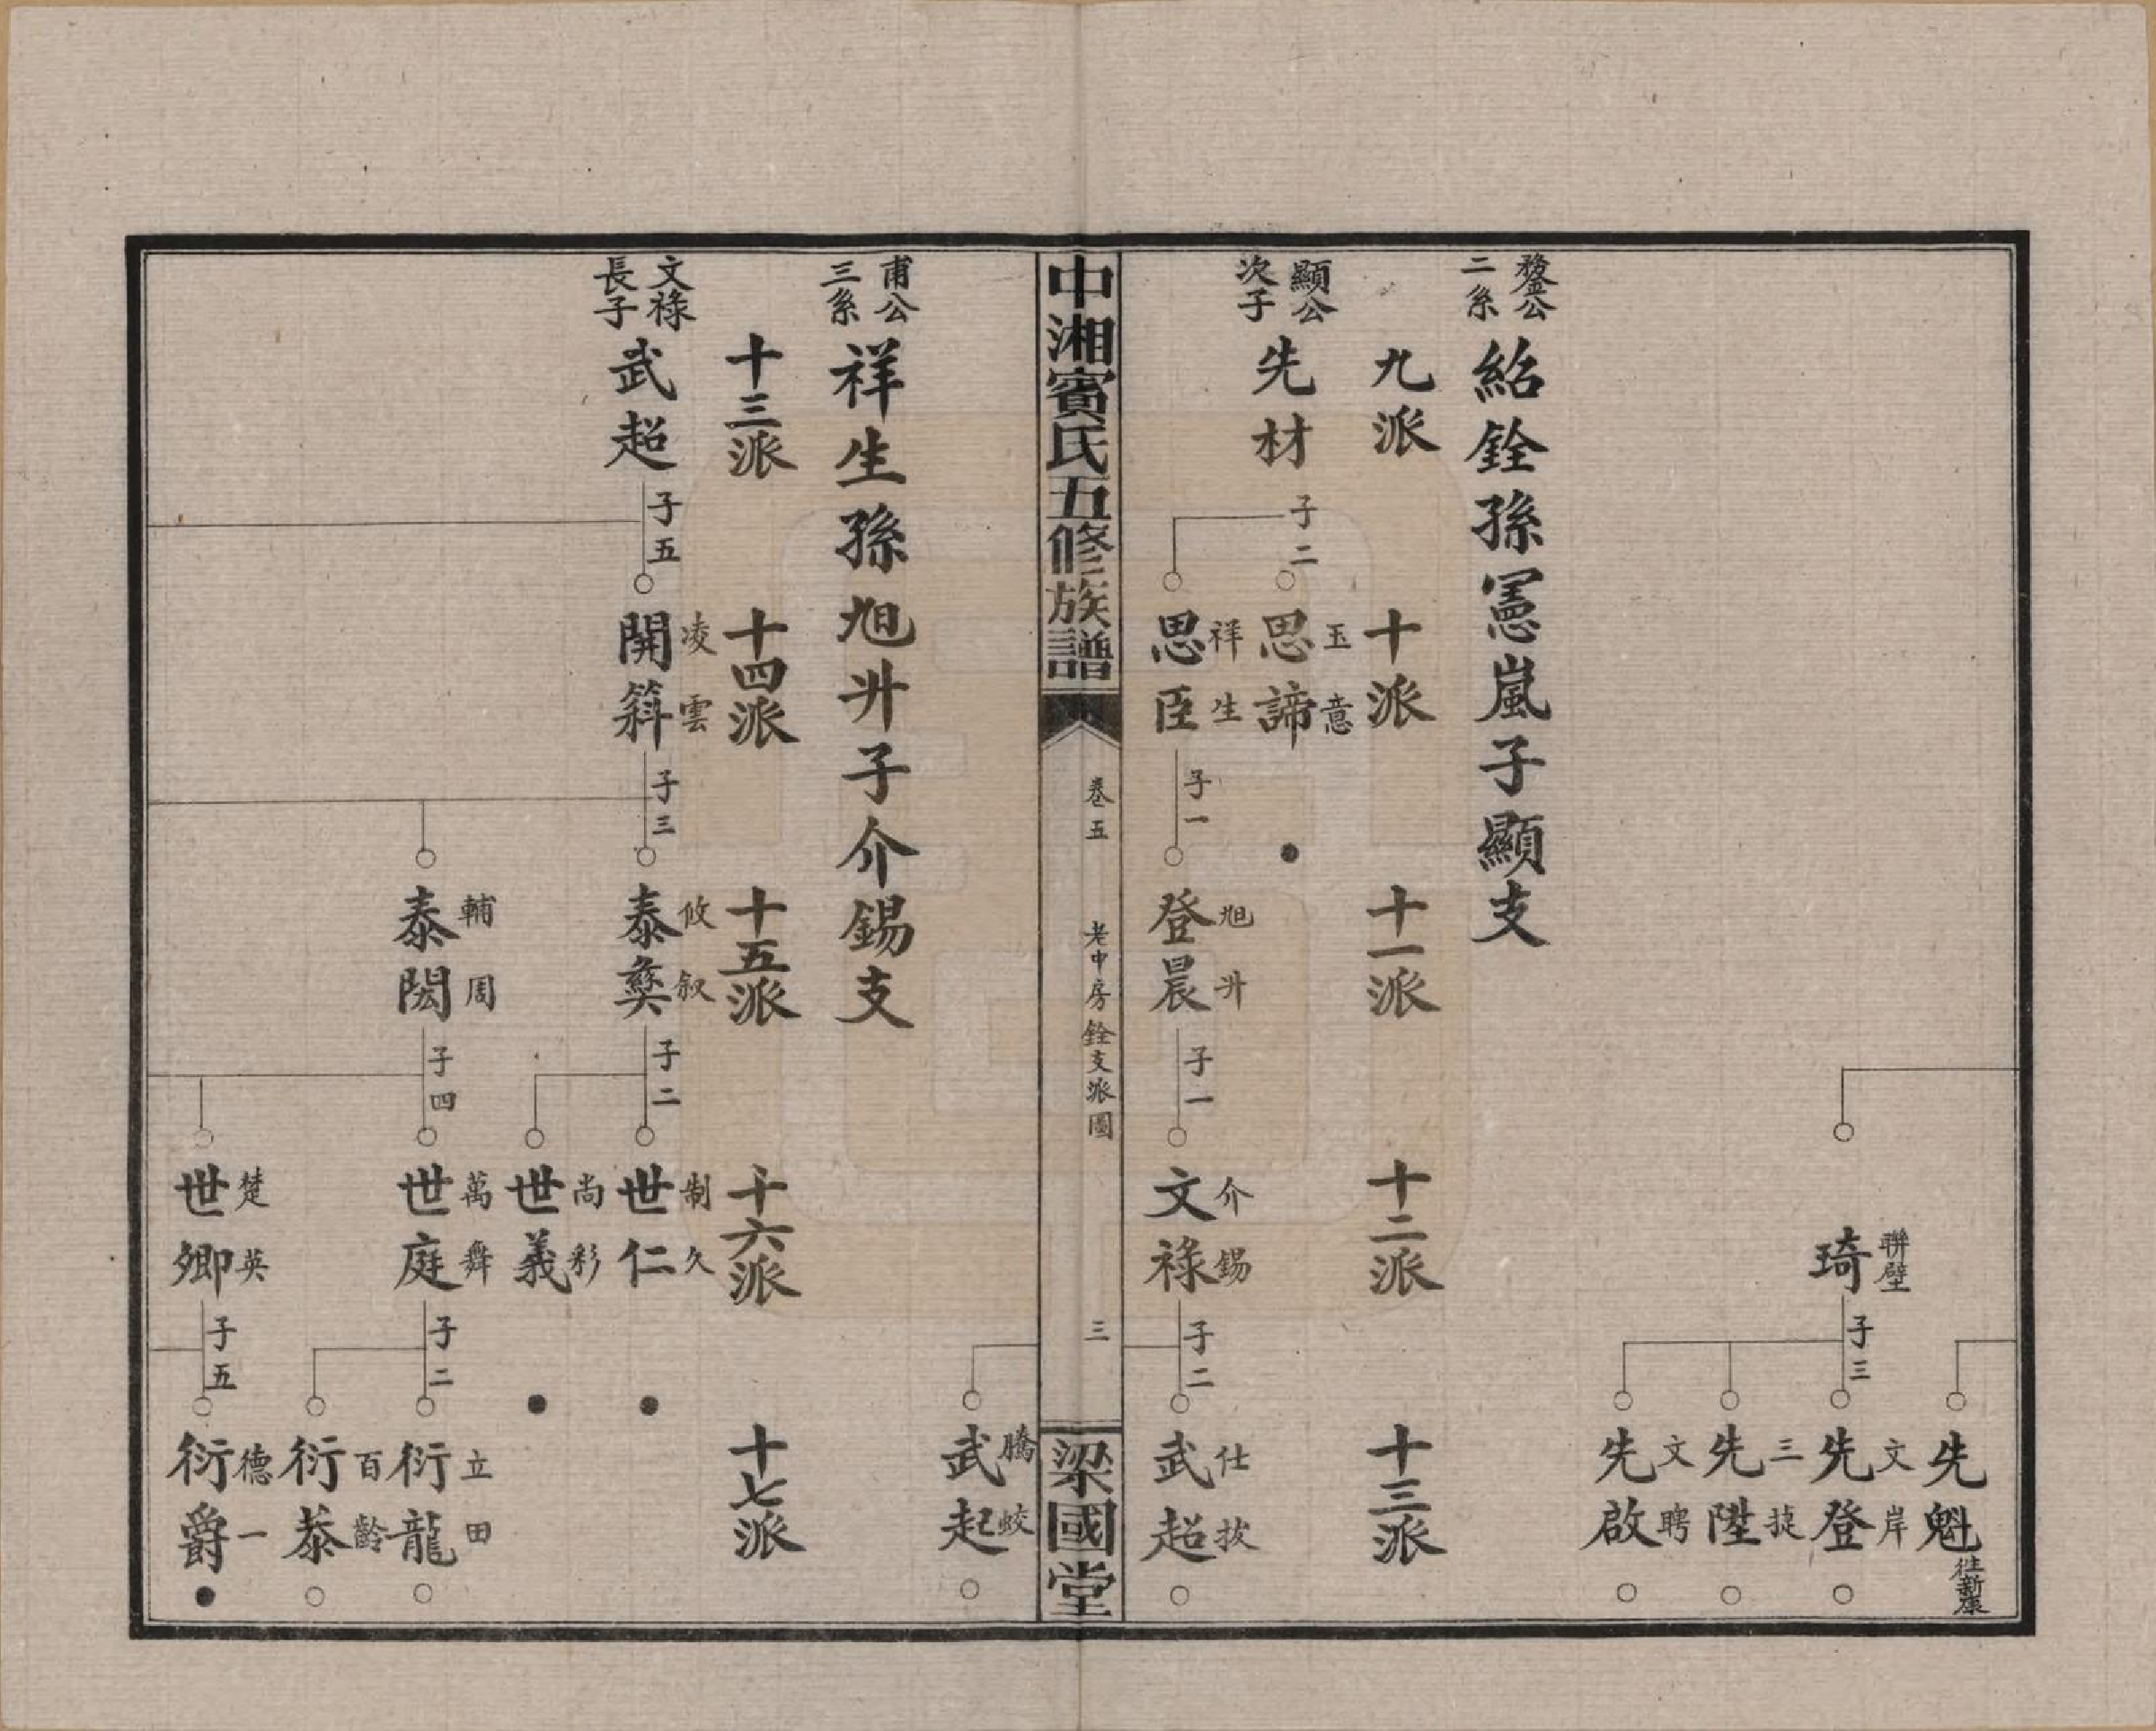 先魁
徃新康
聯璧
琦
子三
文岸
先登
三㨗
先陞
文聘
先啟
發公
二系
紹銓孫憲嵐子顯支
九派
十派
十一派
十二派
十三派
顯公
次子
先材
子二
玉意
思諦
祥生
思臣
子一
旭升
登晨
子一
介錫
文祿
子二
仕拔
武超
中湘賓氏五修族譜
卷五
老中房銓支派圖
三
梁國堂
騰蛟
武起
甫公
三系
祥生孫旭升子介錫支
十三派
十四派
十五派
十六派
十七派
文祿
長子
武超
子五
凌雲
開㪷
子三
攸叙
泰彝
子二
制久
世仁
尚彩
世義
輔周
泰閎
子四
萬舞
世庭
子二
立田
衍龍
百齡
衍恭
楚英
世卿
子五
德一
衍爵